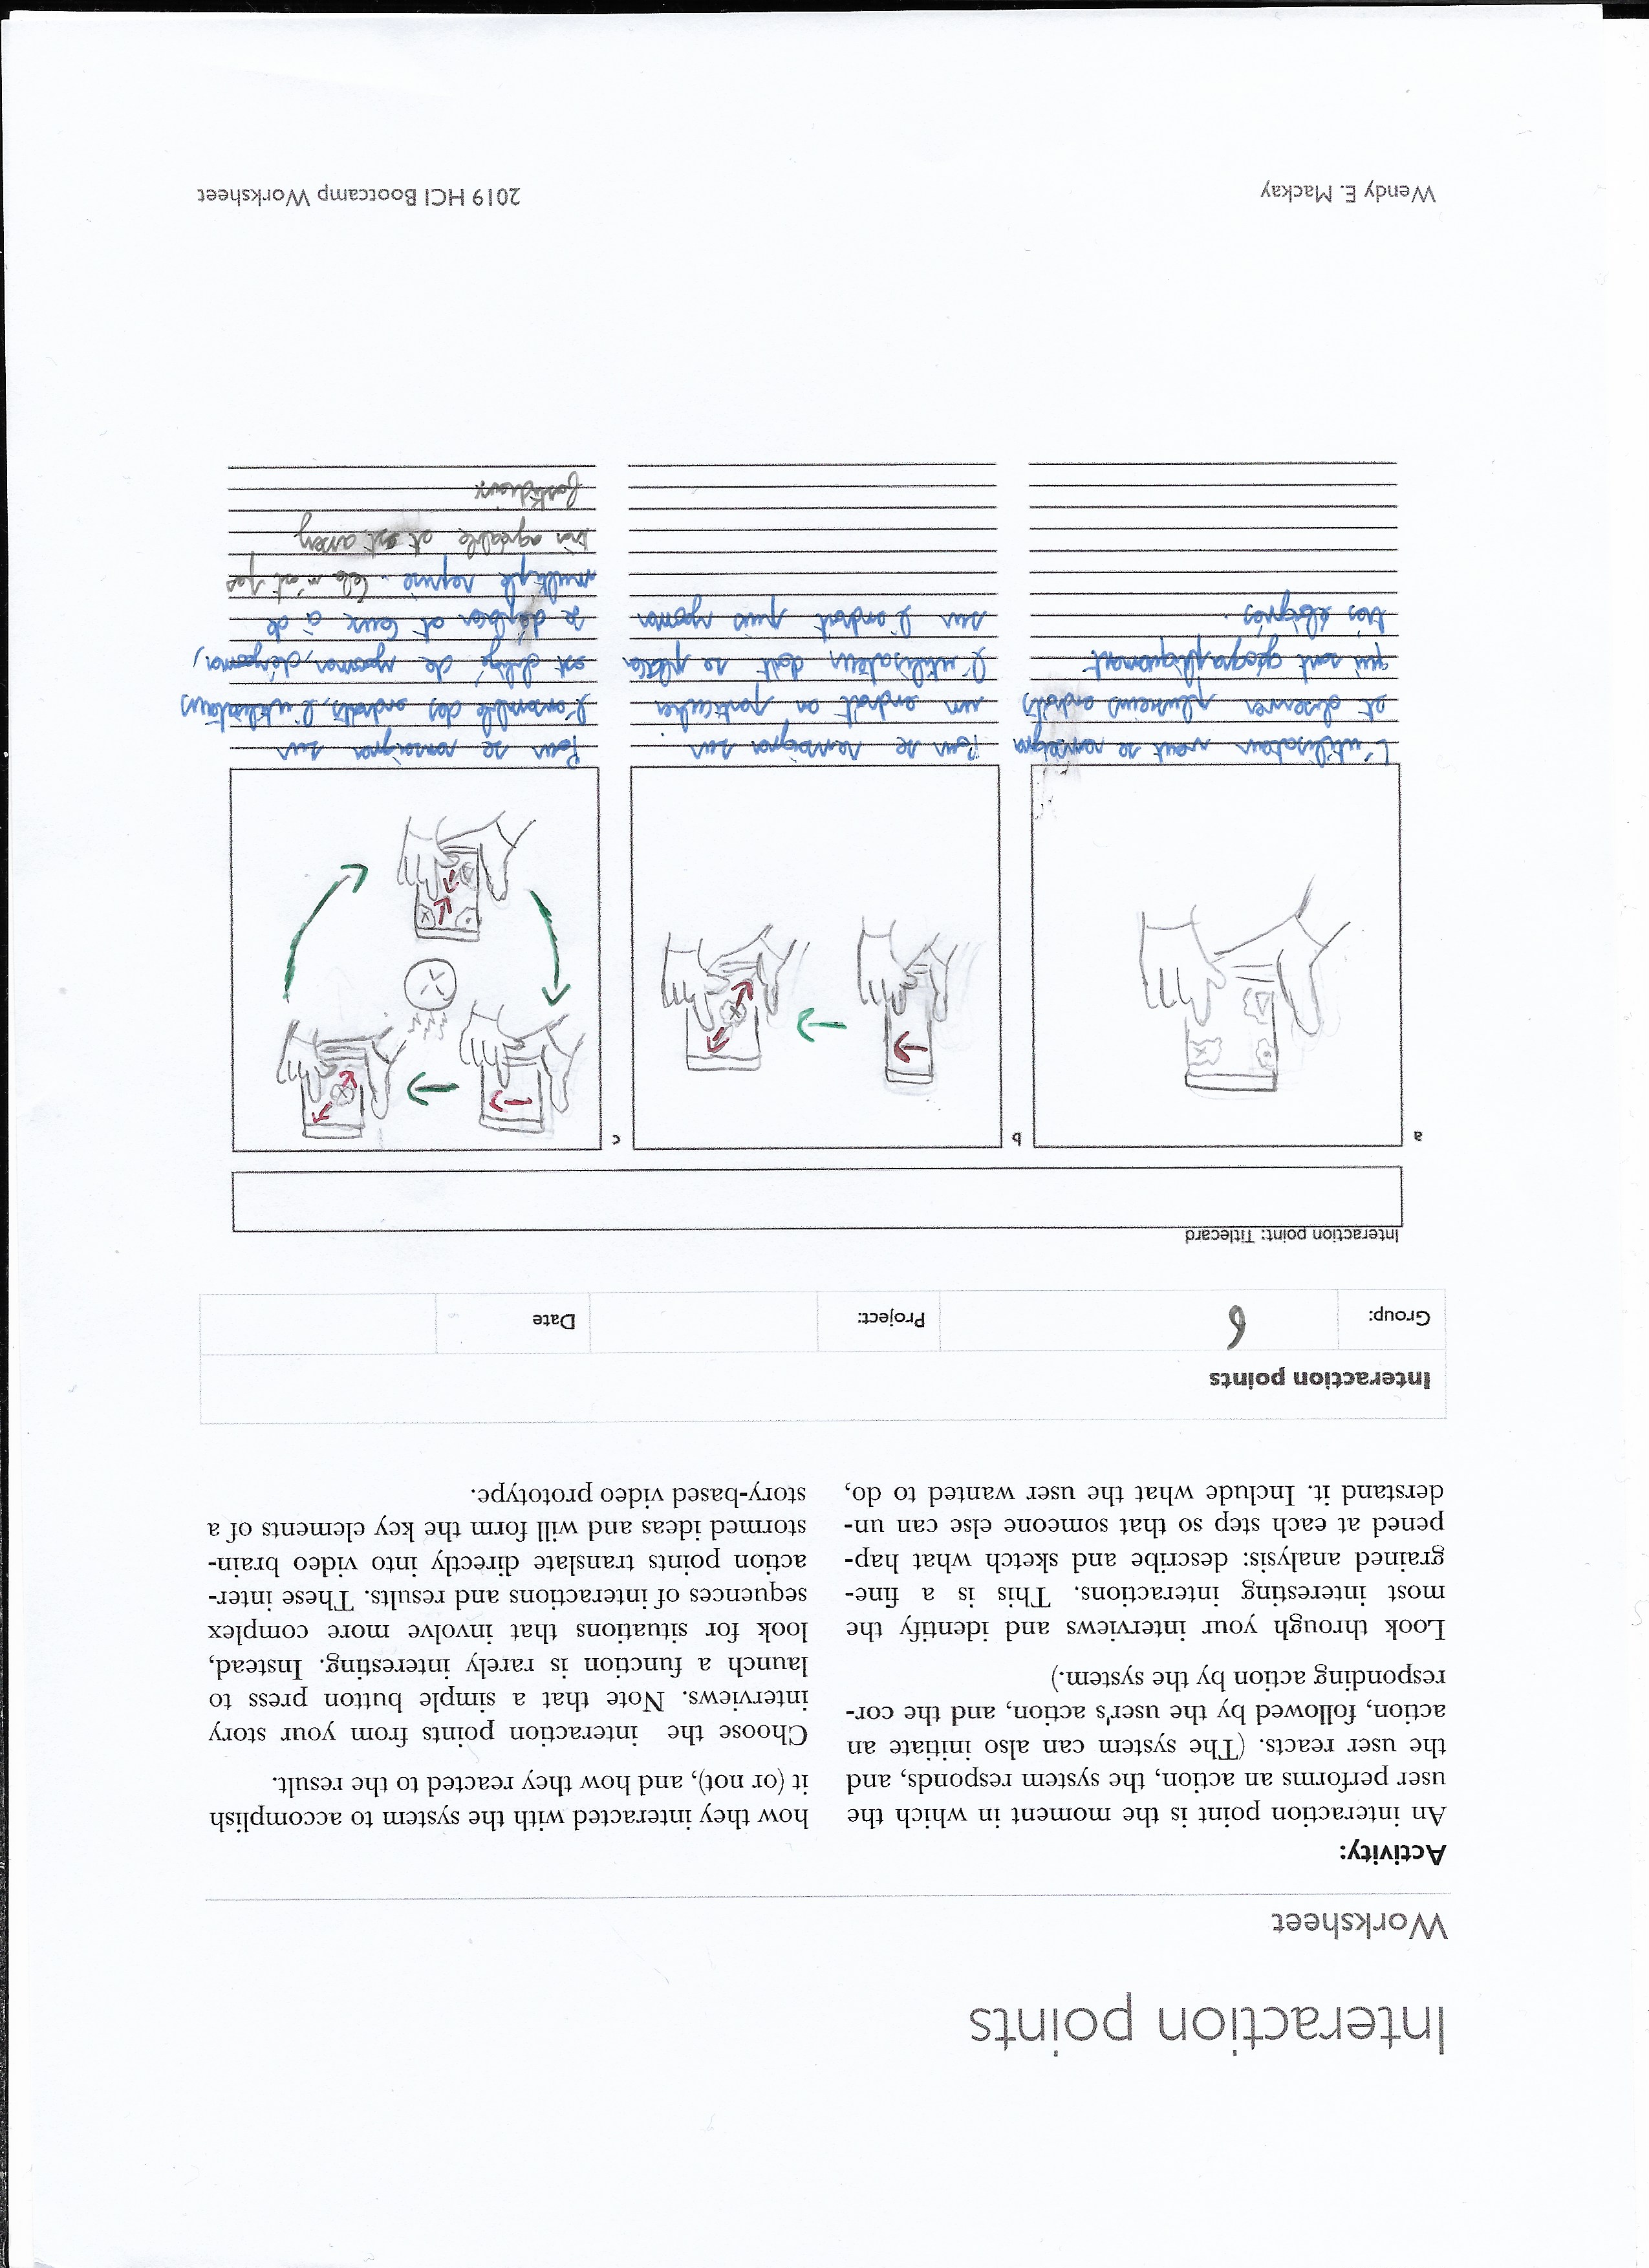 Interaction points
Worksheet
Activity:
An interaction point is the moment in which the
user performs an action, the system responds, and
the user reacts. (The system can also initiate an
action, followed by the user's action, and the cor-
responding action by the system.)
Look through your interviews and identify the
most interesting interactions. This is a fine-
grained analysis: describe and sketch what hap-
pened at each step so that someone else can un-
derstand it. Include what the user wanted to do,
how they interacted with the system to accomplish
it (or not), and how they reacted to the result.
Choose the interaction points from your story
interviews. Note that a simple button press to
launch a function is rarely interesting. Instead,
look for situations that involve more complex
sequences of interactions and results. These inter-
action points translate directly into video brain-
stormed ideas and will form the key elements of a
story-based video prototype.
Interaction points
Group: 6 Project: Date
Interaction point: Titlecard
a
L'utilisateur veut se renseigner
et observer plusieurs endroits
qui sont géographiquement
très éloignés.
b
Pour se renseigner sur
un endroit en particulier
l'utilisateur doit se placer
sur l'endroit puis zoomer
c
Pour se renseigner sur
l'ensemble des endroits, l'utilisateurs
est obligé de zoomer, dézoomer,
se déplacer et ceux à de
multiple reprise. Cela n'est pas
très agréable et est assez
fastidieux
Wendy E. Mackay
2019 HCI Bootcamp Worksheet